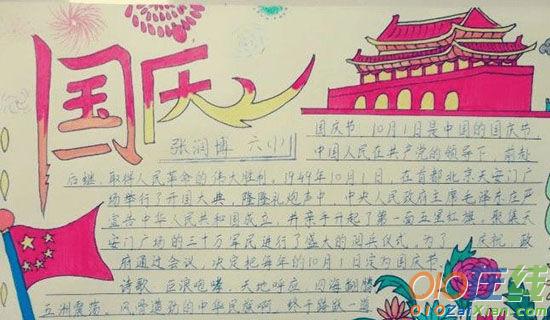 国庆
张润博 六(1)
国庆节 10月1日是中国的国庆节,
中国人民在共产党的领导下,前赴
后继,取得人民革命的伟大胜利,1949年10月1日,在首都北京天安门广
场举行了开国大典,隆隆礼炮声中,中央人民政府主席毛泽东庄严
宣告中华人民共和国成立,并亲手升起了第一面五星红旗,聚集天
安门广场的三十万军民进行了盛大的阅兵仪式,为了 庆祝,政
府通过会议,决定把每年的10月1日定为国庆节。
诗歌 巨浪咆哮,天地呼应 四海翻腾
五洲震荡,风雷激动的中华民族啊 终于踏跃一道
010在线
ZaiXian.com